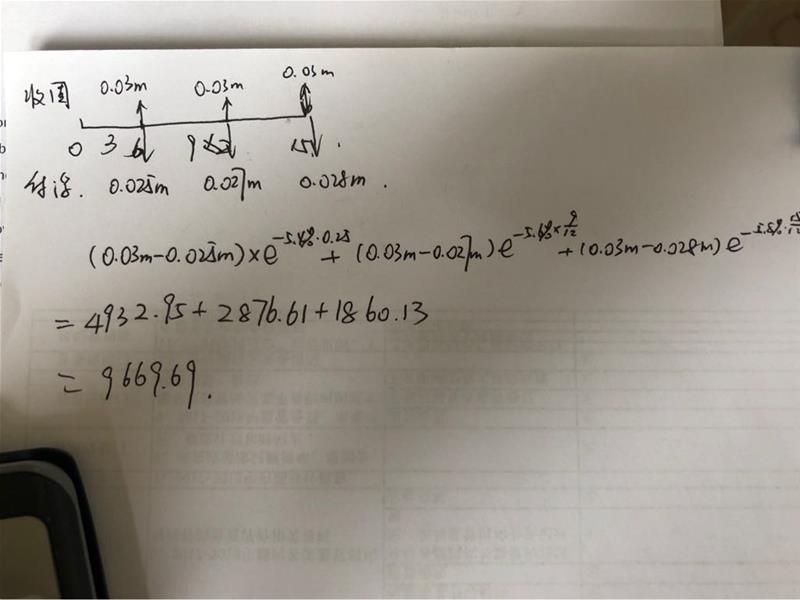 收固 0.03m 0.03m 0.03m
0 3 9 15
付浮. 0.025m 0.027m 0.028m.
(0.03m-0.025m)×e^-5.4%·0.25 + (0.03m-0.027m)e^-5.6%×9/12 + (0.03m-0.028m)e^-5.8%·15/12
= 4932.95 + 2876.61 + 1860.13
= 9669.69.